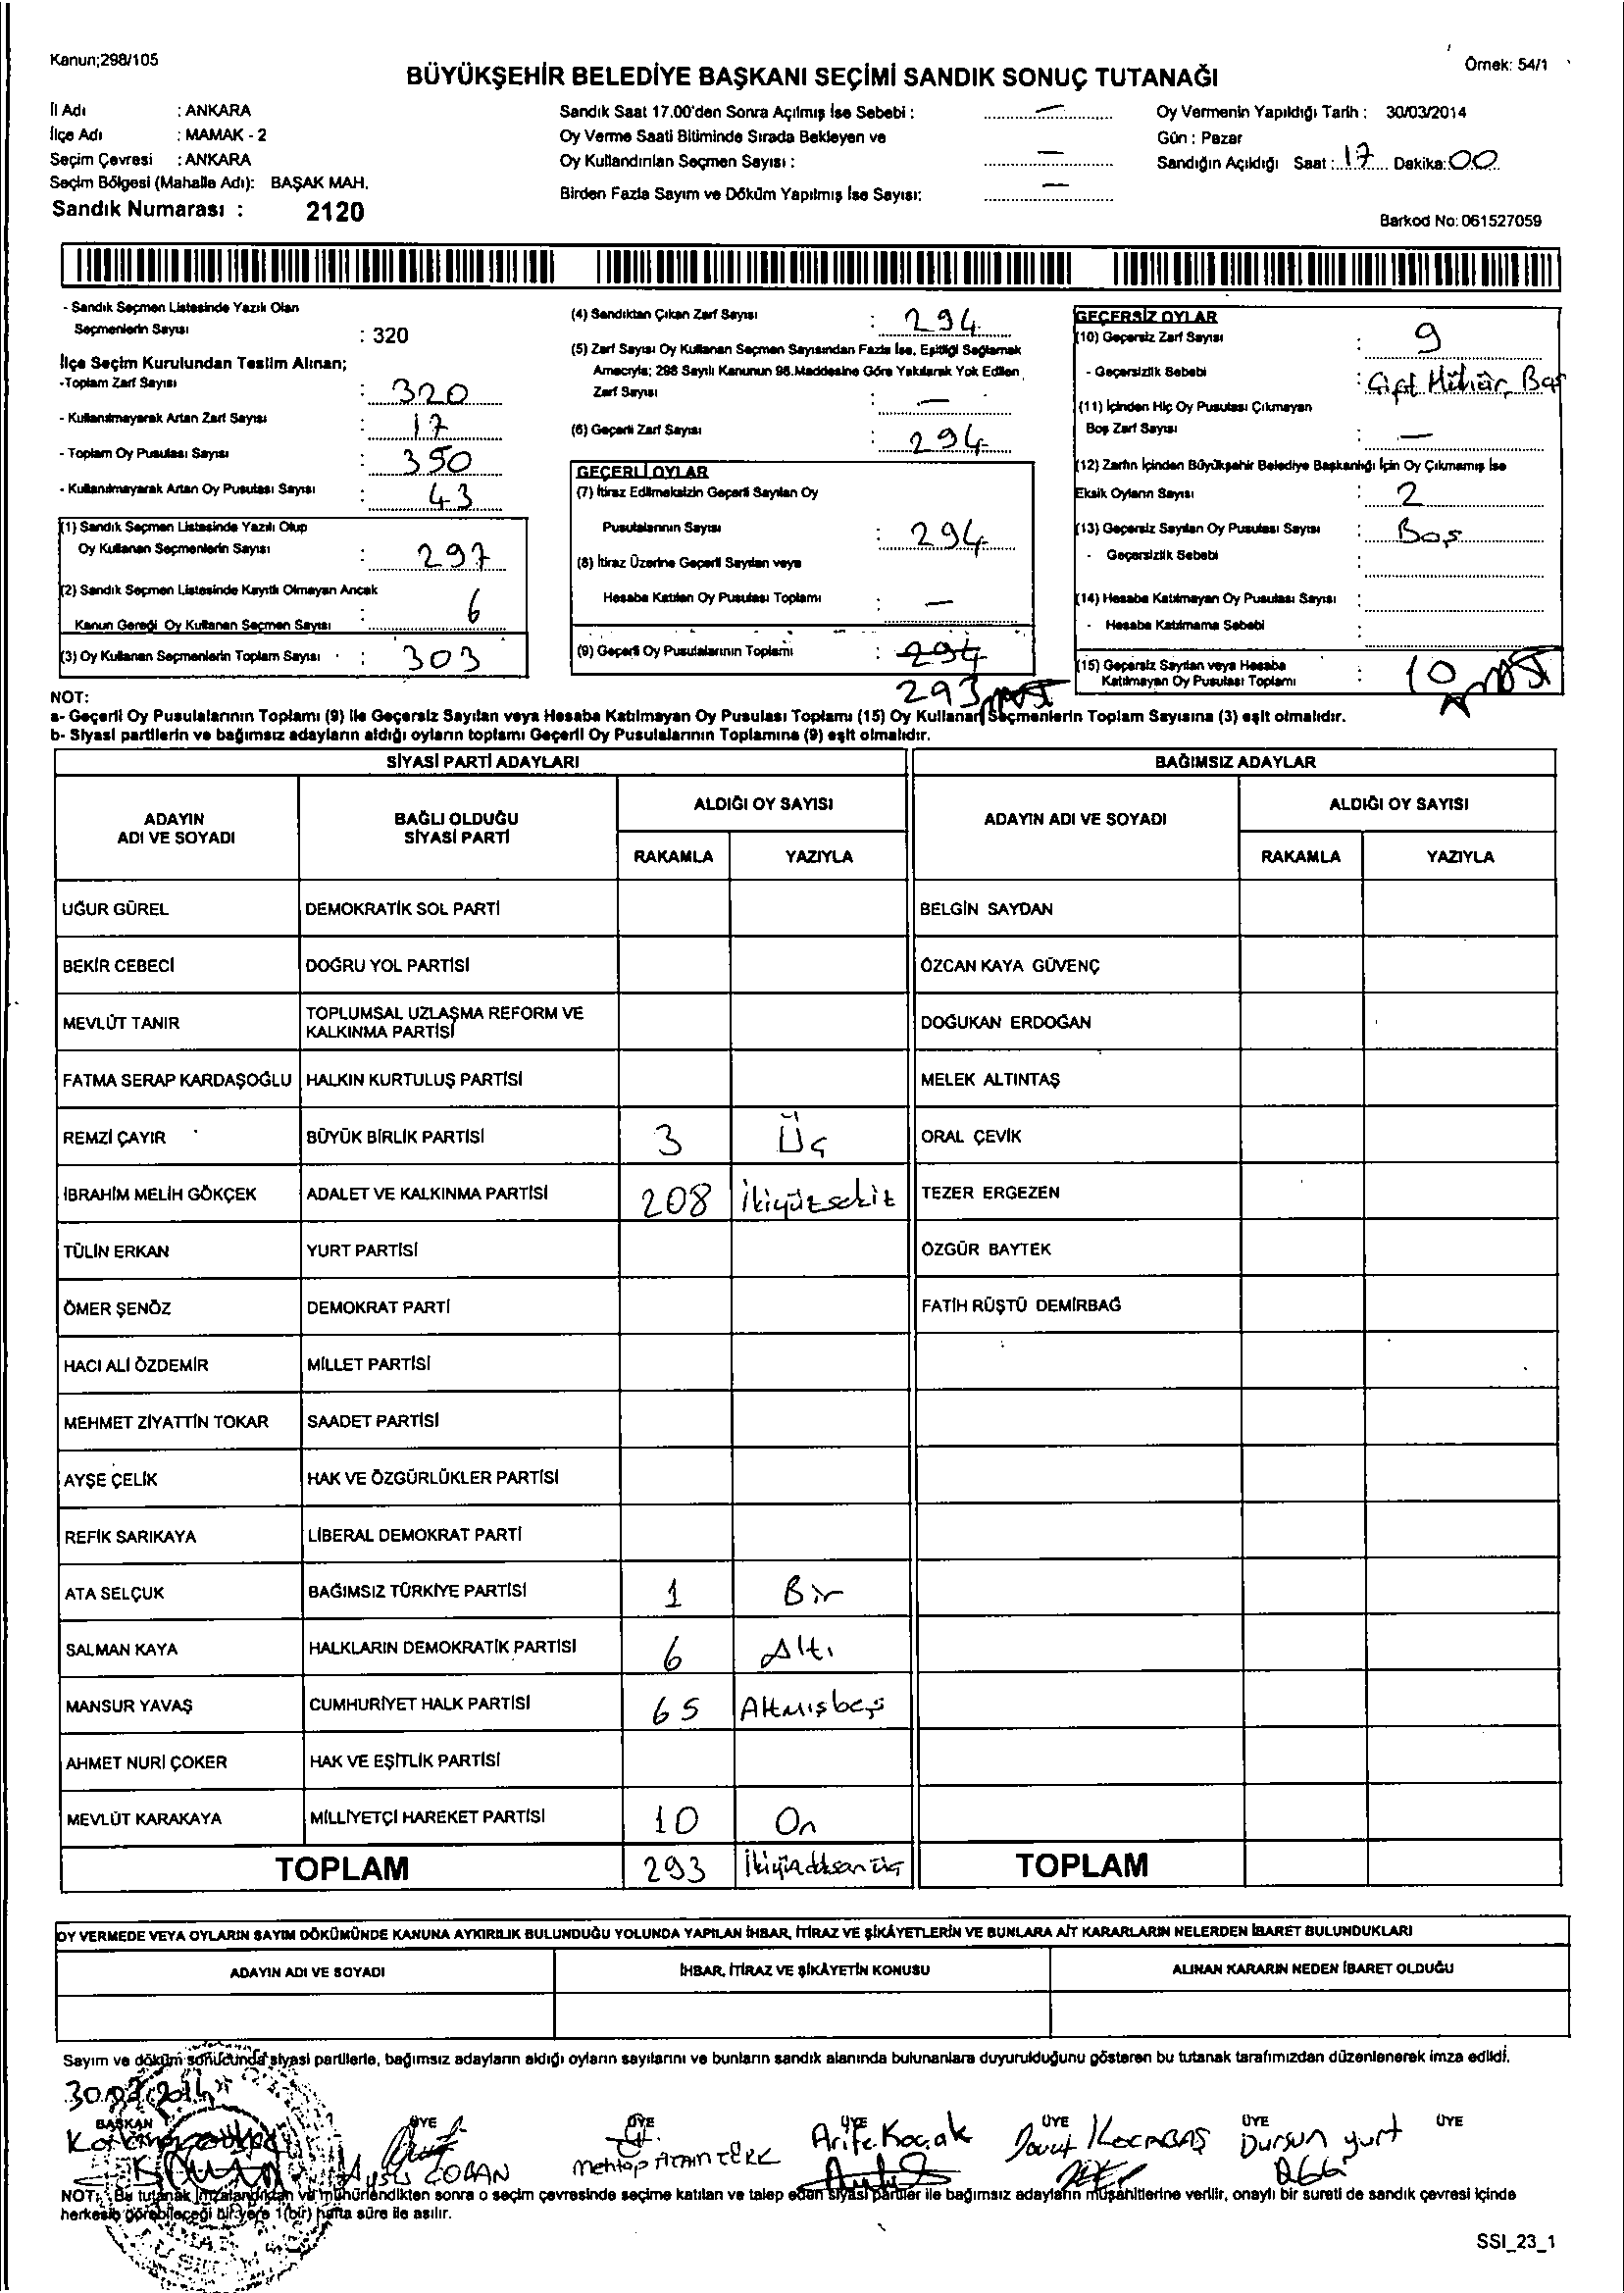 Kanun;298/105
Örnek: 54/1
BÜYÜKŞEHİR BELEDİYE BAŞKANI SEÇİMİ SANDIK SONUÇ TUTANAĞI
İl Adı : ANKARA
İlçe Adı : MAMAK - 2
Seçim Çevresi : ANKARA
Seçim Bölgesi (Mahalle Adı): BAŞAK MAH.
Sandık Numarası : 2120
Sandık Saat 17.00'den Sonra Açılmış İse Sebebi : —
Oy Verme Saati Bitiminde Sırada Bekleyen ve
Oy Kullandırılan Seçmen Sayısı : —
Birden Fazla Sayım ve Döküm Yapılmış İse Sayısı: —
Oy Vermenin Yapıldığı Tarih : 30/03/2014
Gün : Pazar
Sandığın Açıldığı Saat : 17 Dakika: 00
Barkod No: 061527059
- Sandık Seçmen Listesinde Yazılı Olan
Seçmenlerin Sayısı : 320
İlçe Seçim Kurulundan Teslim Alınan;
-Toplam Zarf Sayısı : 320
- Kullanılmayarak Artan Zarf Sayısı : 17
- Toplam Oy Pusulası Sayısı : 350
- Kullanılmayarak Artan Oy Pusulası Sayısı : 43
(1) Sandık Seçmen Listesinde Yazılı Olup
Oy Kullanan Seçmenlerin Sayısı : 297
(2) Sandık Seçmen Listesinde Kayıtlı Olmayan Ancak
Kanun Gereği Oy Kullanan Seçmen Sayısı : 6
(3) Oy Kullanan Seçmenlerin Toplam Sayısı : 303
(4) Sandıktan Çıkan Zarf Sayısı : 294
(5) Zarf Sayısı Oy Kullanan Seçmen Sayısından Fazla İse, Eşitliği Sağlamak
Amacıyla; 298 Sayılı Kanunun 98.Maddesine Göre Yakılarak Yok Edilen
Zarf Sayısı : —
(6) Geçerli Zarf Sayısı : 294
GEÇERLİ OYLAR
(7) İtiraz Edilmeksizin Geçerli Sayılan Oy
Pusulalarının Sayısı : 294
(8) İtiraz Üzerine Geçerli Sayılan veya
Hesaba Katılan Oy Pusulası Toplamı : —
(9) Geçerli Oy Pusulalarının Toplamı : 294
293
GEÇERSİZ OYLAR
(10) Geçersiz Zarf Sayısı : 9
- Geçersizlik Sebebi : Çift Mühür, Boş
(11) İçinden Hiç Oy Pusulası Çıkmayan
Boş Zarf Sayısı : —
(12) Zarfın İçinden Büyükşehir Belediye Başkanlığı İçin Oy Çıkmamış İse
Eksik Oyların Sayısı : 2
(13) Geçersiz Sayılan Oy Pusulası Sayısı : Boş
- Geçersizlik Sebebi
(14) Hesaba Katılmayan Oy Pusulası Sayısı :
- Hesaba Katılmama Sebebi :
(15) Geçersiz Sayılan veya Hesaba
Katılmayan Oy Pusulası Toplamı : 10
NOT:
a- Geçerli Oy Pusulalarının Toplamı (9) ile Geçersiz Sayılan veya Hesaba Katılmayan Oy Pusulası Toplamı (15) Oy Kullanan Seçmenlerin Toplam Sayısına (3) eşit olmalıdır.
b- Siyasi partilerin ve bağımsız adayların aldığı oyların toplamı Geçerli Oy Pusulalarının Toplamına (9) eşit olmalıdır.
SİYASİ PARTİ ADAYLARI BAĞIMSIZ ADAYLAR
ADAYIN ADI VE SOYADI BAĞLI OLDUĞU SİYASİ PARTİ ALDIĞI OY SAYISI ADAYIN ADI VE SOYADI ALDIĞI OY SAYISI
RAKAMLA YAZIYLA RAKAMLA YAZIYLA
UĞUR GÜREL DEMOKRATİK SOL PARTİ BELGİN SAYDAN
BEKİR CEBECİ DOĞRU YOL PARTİSİ ÖZCAN KAYA GÜVENÇ
MEVLÜT TANIR TOPLUMSAL UZLAŞMA REFORM VE KALKINMA PARTİSİ DOĞUKAN ERDOĞAN
FATMA SERAP KARDAŞOĞLU HALKIN KURTULUŞ PARTİSİ MELEK ALTINTAŞ
REMZİ ÇAYIR BÜYÜK BİRLİK PARTİSİ 3 Üç ORAL ÇEVİK
İBRAHİM MELİH GÖKÇEK ADALET VE KALKINMA PARTİSİ 208 İkiyüzsekiz TEZER ERGEZEN
TÜLİN ERKAN YURT PARTİSİ ÖZGÜR BAYTEK
ÖMER ŞENÖZ DEMOKRAT PARTİ FATİH RÜŞTÜ DEMİRBAĞ
HACI ALİ ÖZDEMİR MİLLET PARTİSİ
MEHMET ZİYATTİN TOKAR SAADET PARTİSİ
AYŞE ÇELİK HAK VE ÖZGÜRLÜKLER PARTİSİ
REFİK SARIKAYA LİBERAL DEMOKRAT PARTİ
ATA SELÇUK BAĞIMSIZ TÜRKİYE PARTİSİ 1 Bir
SALMAN KAYA HALKLARIN DEMOKRATİK PARTİSİ 6 Altı
MANSUR YAVAŞ CUMHURİYET HALK PARTİSİ 65 Altmışbeş
AHMET NURİ ÇOKER HAK VE EŞİTLİK PARTİSİ
MEVLÜT KARAKAYA MİLLİYETÇİ HAREKET PARTİSİ 10 On
TOPLAM 293 TOPLAM
OY VERMEDE VEYA OYLARIN SAYIM DÖKÜMÜNDE KANUNA AYKIRILIK BULUNDUĞU YOLUNDA YAPILAN İHBAR, İTİRAZ VE ŞİKÂYETLERİN VE BUNLARA AİT KARARLARIN NELERDEN İBARET BULUNDUKLARI
ADAYIN ADI VE SOYADI İHBAR, İTİRAZ VE ŞİKÂYETİN KONUSU ALINAN KARARIN NEDEN İBARET OLDUĞU
Sayım ve döküm sonucunda siyasi partilerle, bağımsız adayların aldığı oyların sayılarını ve bunların sandık alanında bulunanlara duyurulduğunu gösteren bu tutanak tarafımızdan düzenlenerek imza edildi.
30.03.2014
BAŞKAN ÜYE ÜYE ÜYE ÜYE ÜYE ÜYE
ÇOBAN Mehtap Arife Koçak Davut KOCABAŞ Dursun yurt
NOT: Bu tutanak imzalandıktan ve mühürlendikten sonra o seçim çevresinde seçime katılan ve talep eden siyasi partiler ile bağımsız adayların müşahitlerine verilir, onaylı bir sureti de sandık çevresi içinde
herkesin görebileceği bir yere 1(bir) hafta süre ile asılır.
SSI_23_1